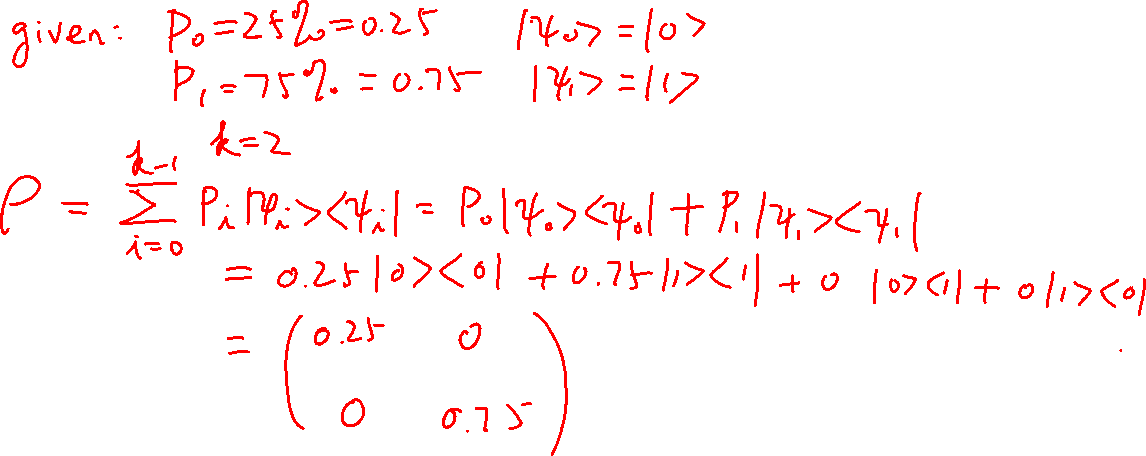 given: P₀=25%=0.25 |ψ₀>=|0>
P₁=75%=0.75 |ψ₁>=|1>
k=2
ρ = ∑_{i=0}^{k-1} Pᵢ|ψᵢ><ψᵢ| = P₀|ψ₀><ψ₀| + P₁|ψ₁><ψ₁|
= 0.25|0><0| + 0.75|1><1| + 0 |0><1| + 0|1><0|
= ( 0.25 0
0 0.75 )